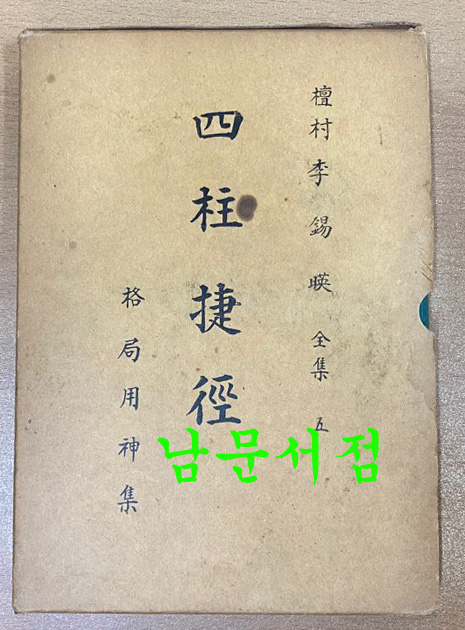 檀村 李錫暎 全集 五
四柱捷徑
格局用神集
남문서점